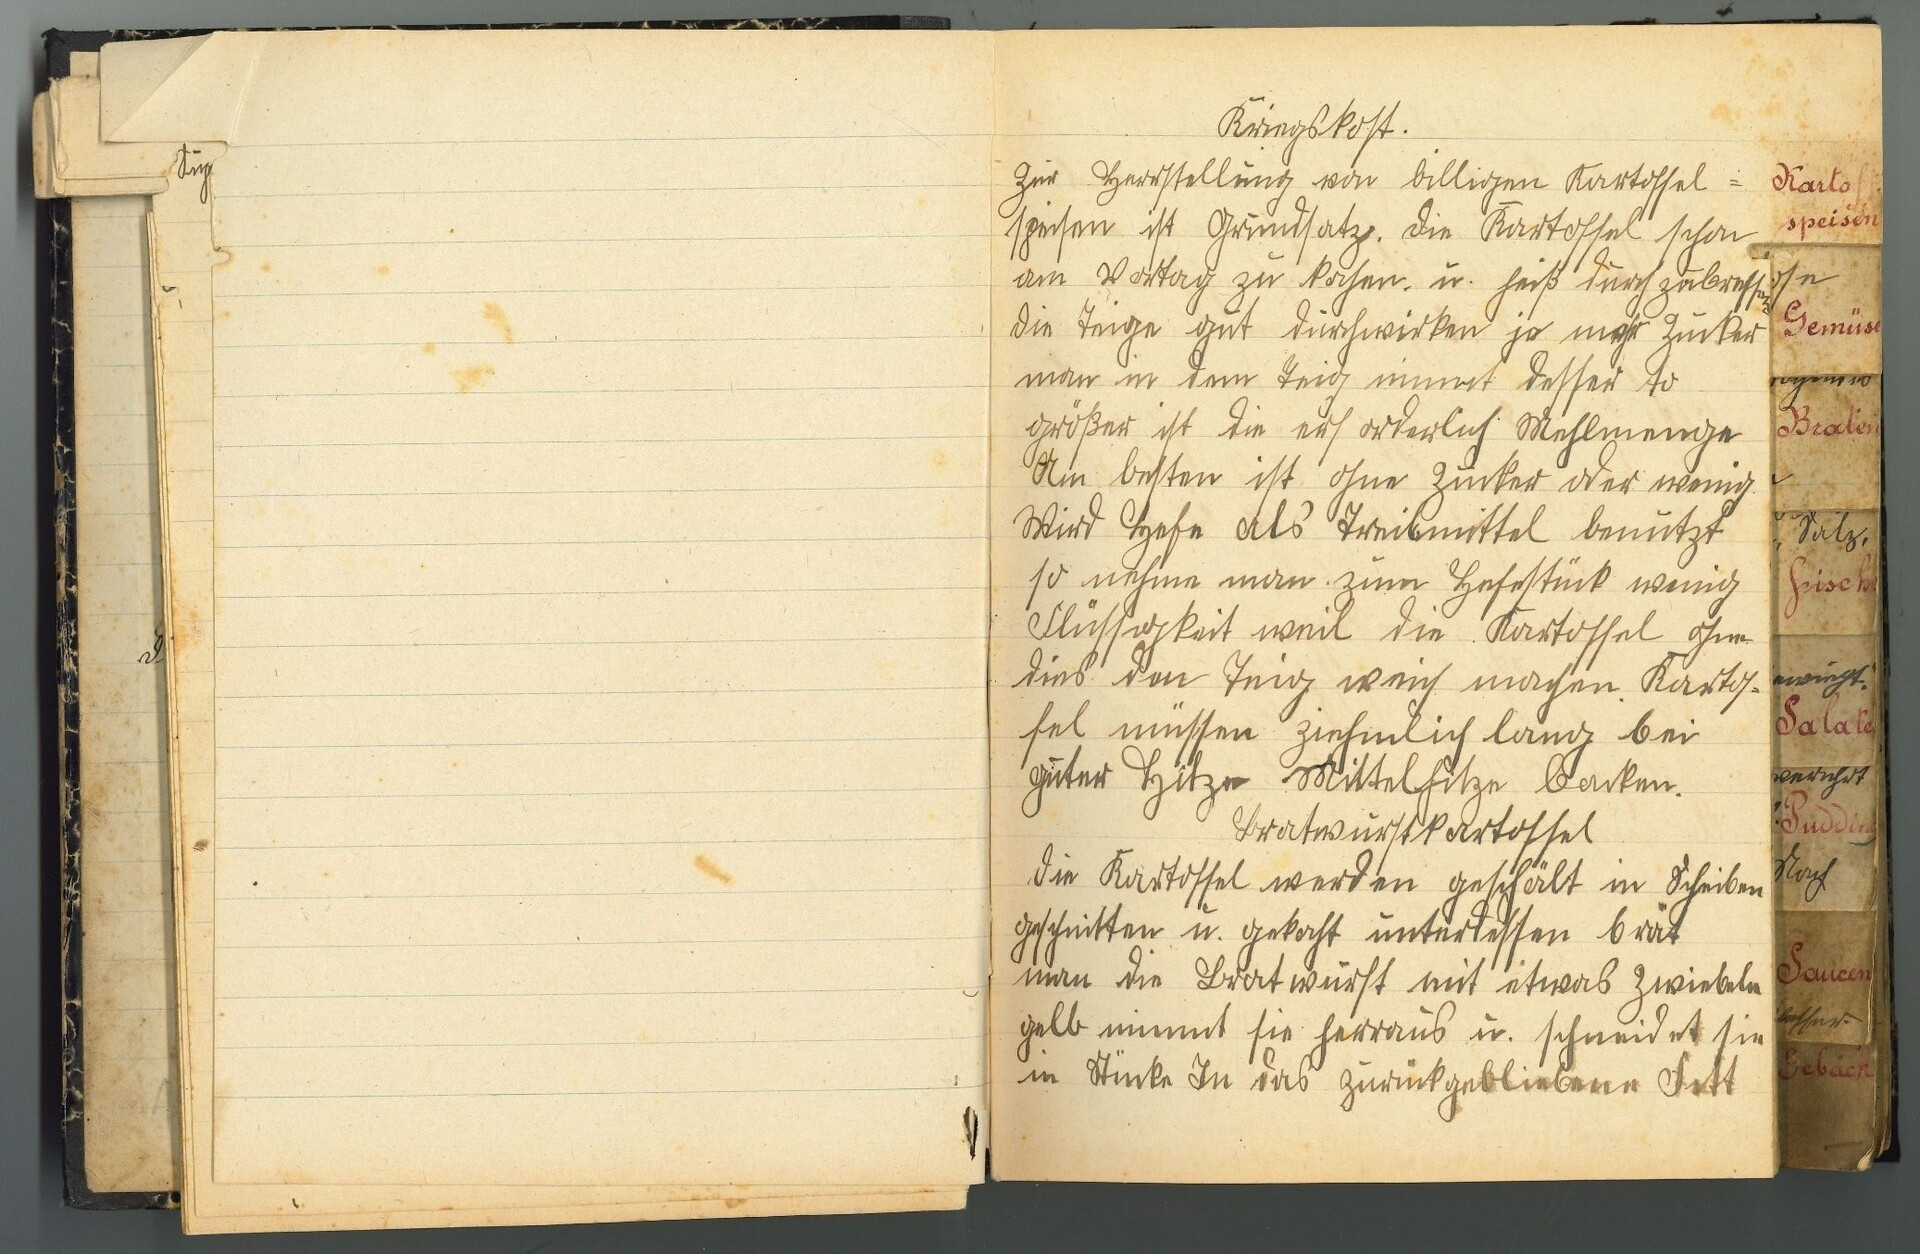 Kriegskost.
Zur Herrstellung von billigen Kartoffel =
speisen ist Grundsatz. die Kartoffel schon
am Vortag zu kochen. u. heiß durch
die Teige gut durchwirken je mehr Zucker
man in dem Teig nimmt desser to
größer ist die erforderlich Mehlmenge
Am besten ist ohne Zucker oder wenig
Wird Hefe als Treibmittel benützt
so nehme man zum Hefestück wenig
Flüssigkeit weil die Kartoffel ohne
dies den Teig weich machen. Kartof-
fel müssen ziehmlich lang bei
guter Hitze Mittelhitze backen.
Bratwurstkartoffel
die Kartoffel werden geschält in Scheiben
geschnitten u. gekocht unterdessen brät
man die Bratwurst mit etwas Zwiebeln
gelb nimmt sie herraus u. schneidet sie
in Stücke In das zurückgebliebene Fett
Kartoff
speisen
Gemüse
Braten
Salz.
Fische
Salate
Pudding
Nach
Saucen
besser
Gebäck